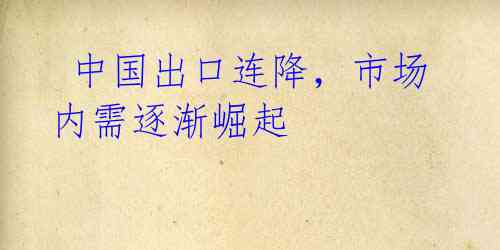 中国出口连降，市场
内需逐渐崛起